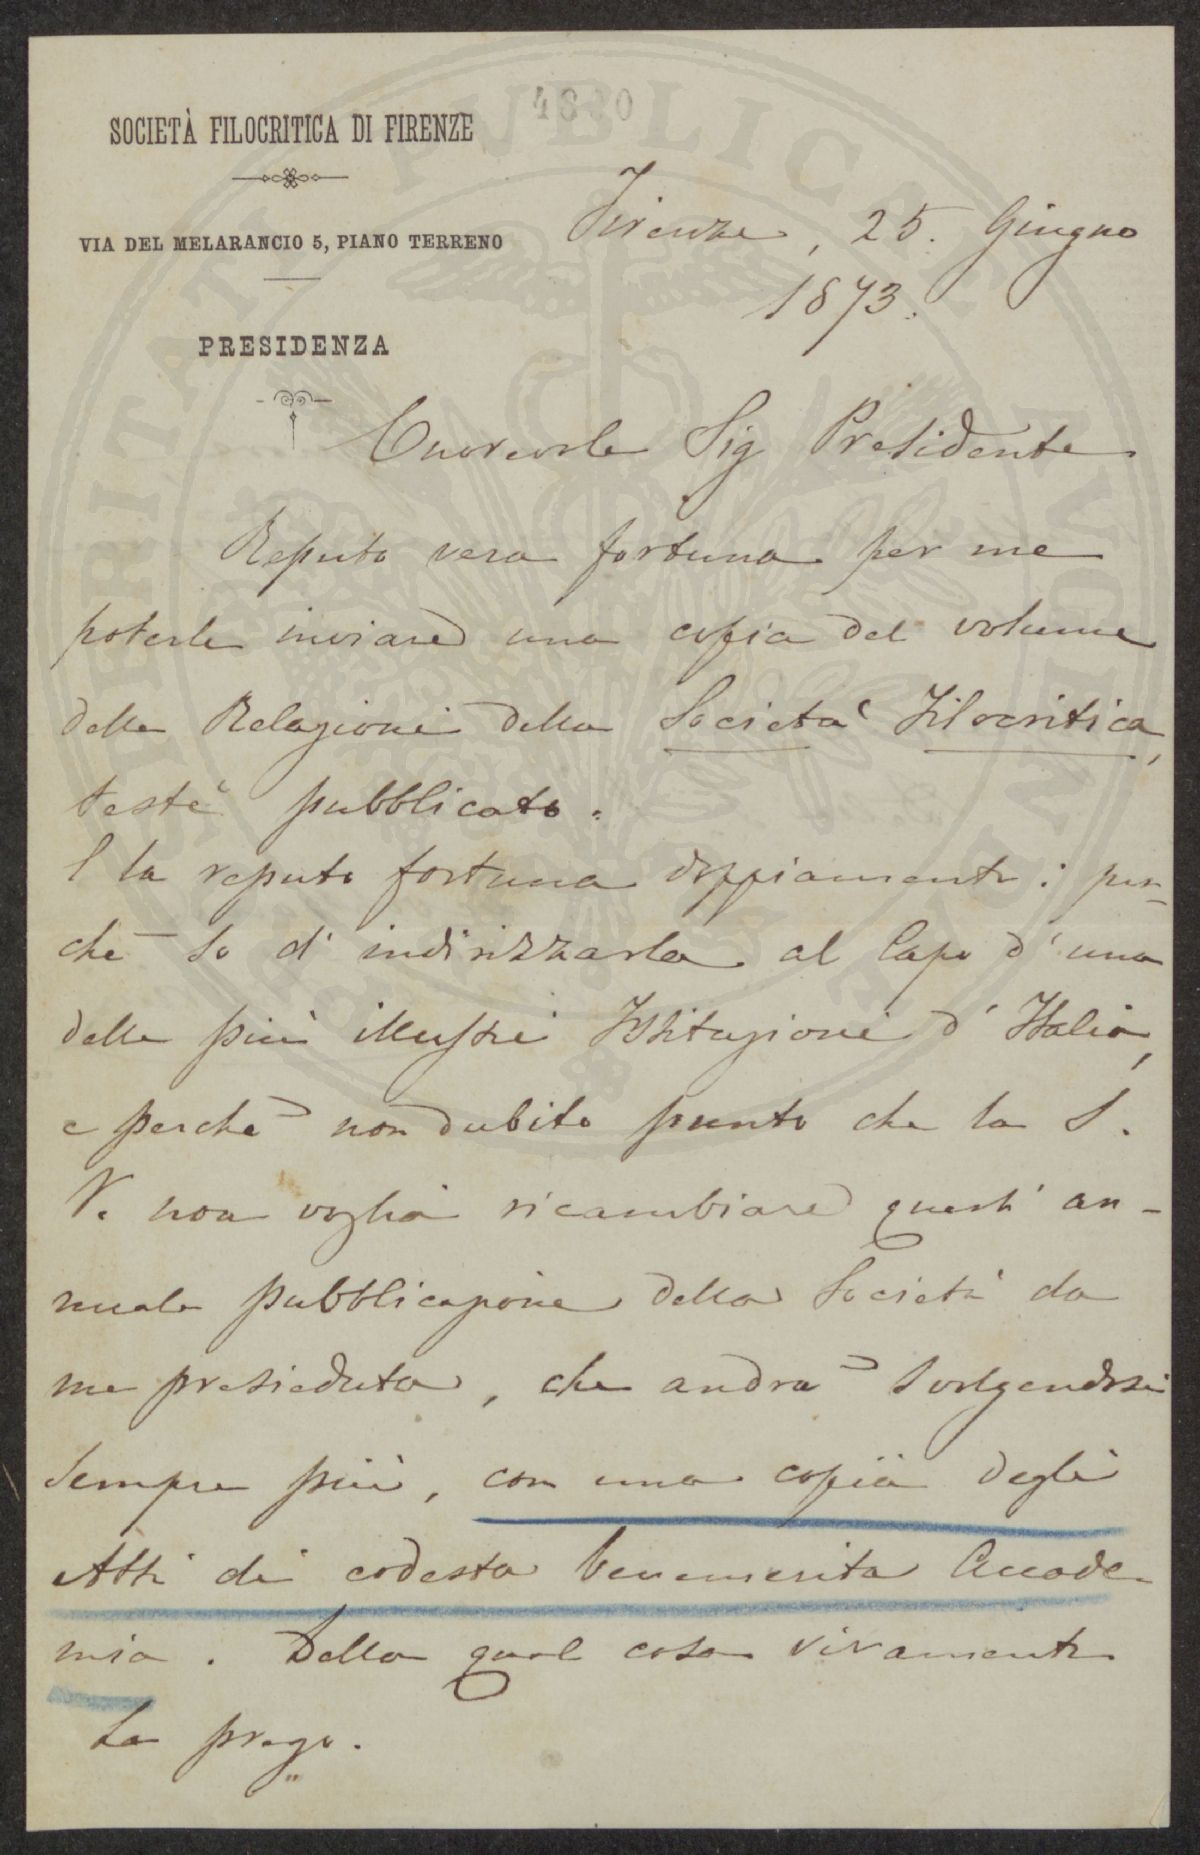 4890
SOCIETÀ FILOCRITICA DI FIRENZE
VIA DEL MELARANCIO 5, PIANO TERRENO
PRESIDENZA
Firenze, 25. Giugno
1873.
Onorevole Sig Presidente
Reputo vera fortuna per me
poterle inviare una copia del volume
delle Relazioni della Società Filocritica,
testè pubblicato.
E la reputo fortuna doppiamente: per-
chè so d'indirizzarla al Capo d'una
delle più illustri Istituzioni d'Italia,
e perchè non dubito punto che la S.
V. non voglia ricambiare quest'an-
nuale pubblicazione della Società da
me presieduta, che andrà svolgendosi
sempre più, con una copia degli
Atti di codesta benemerita Accade-
mia. Della qual cosa vivamente
La prego.